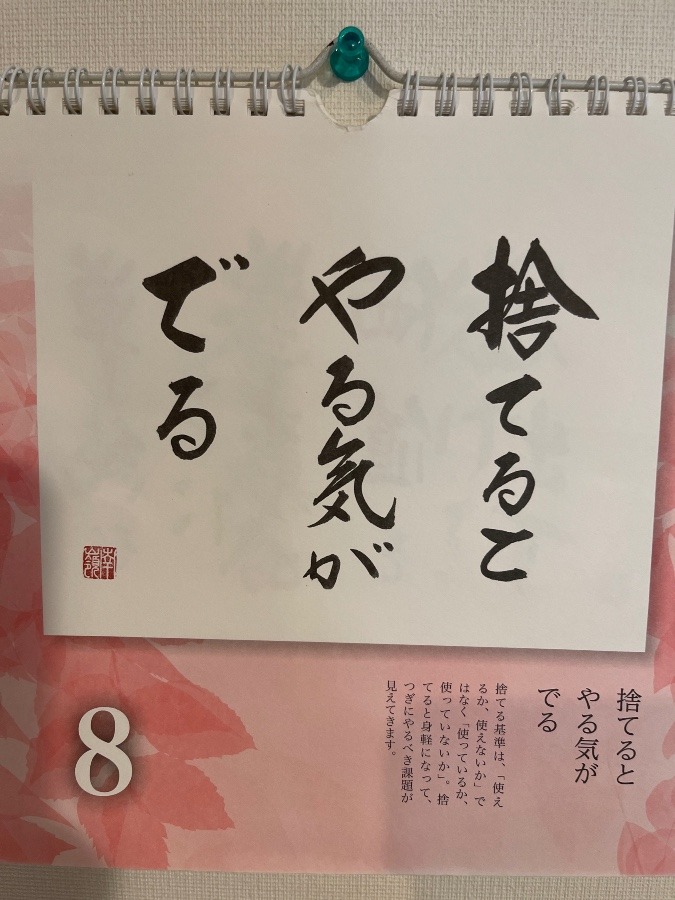 捨てると
やる気が
でる
南嶺
捨てると
やる気が
でる
捨てる基準は、「使え
るか、使えないか」で
はなく「使っているか、
使っていないか」。捨
てると身軽になって、
つぎにやるべき課題が
見えてきます。
8